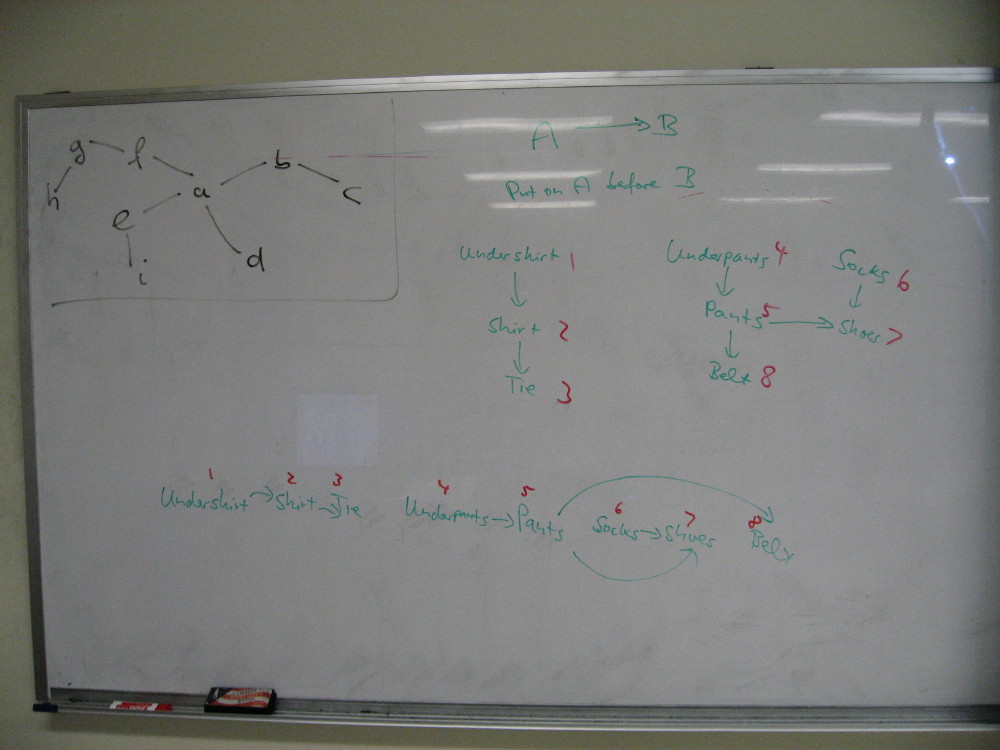 g f b
h a c
e
i d
A → B
Put on A before B
Undershirt 1 Underpants 4 Socks 6
Shirt 2 Pants 5 → Shoes 7
Tie 3 Belt 8
1 2 3 4 5 6 7 8
Undershirt → Shirt → Tie Underpants → Pants Socks → Shoes Belt